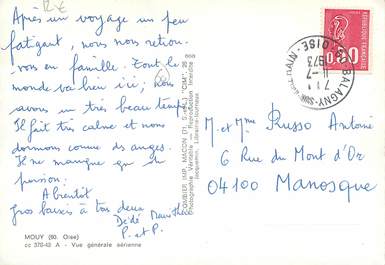 12 €
Après un voyage un peu
fatigant, nous nous retrou-
vons en famille. Tout le
monde va bien ici; Nous
avons un très beau temps
Il fait très calme et nous
dormons comme des anges.
Il ne manque que du
poisson.
A bientôt
gros baisers à tous deux
Dédé
P. et P.
MOUY (60. Oise)
cc 376-43 A - Vue générale aérienne
COMBIER IMP. MACON (71 S.-et-L.) "CIM"
Photographie Véritable - Reproduction Interdite
BALAGNY-SUR-THERAIN
OISE
11-7
1973
0,50
M. et Mme Russo Antoine
6 Rue du Mont d'Or
04100 Manosque